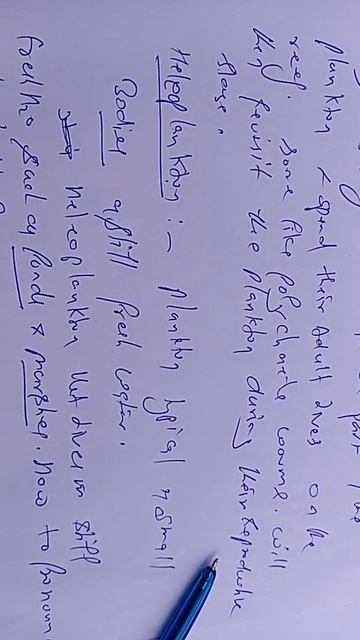 part
plankton spend their adult lives on the
reef. Some like polychaete worms. will
then revisit the plankton during their reproductive
stage.
Heleoplankton :- plankton typical of small
Bodies of still fresh water.
Heleoplankton that lives in still
freshwater such as ponds & marshes. How to pronoun